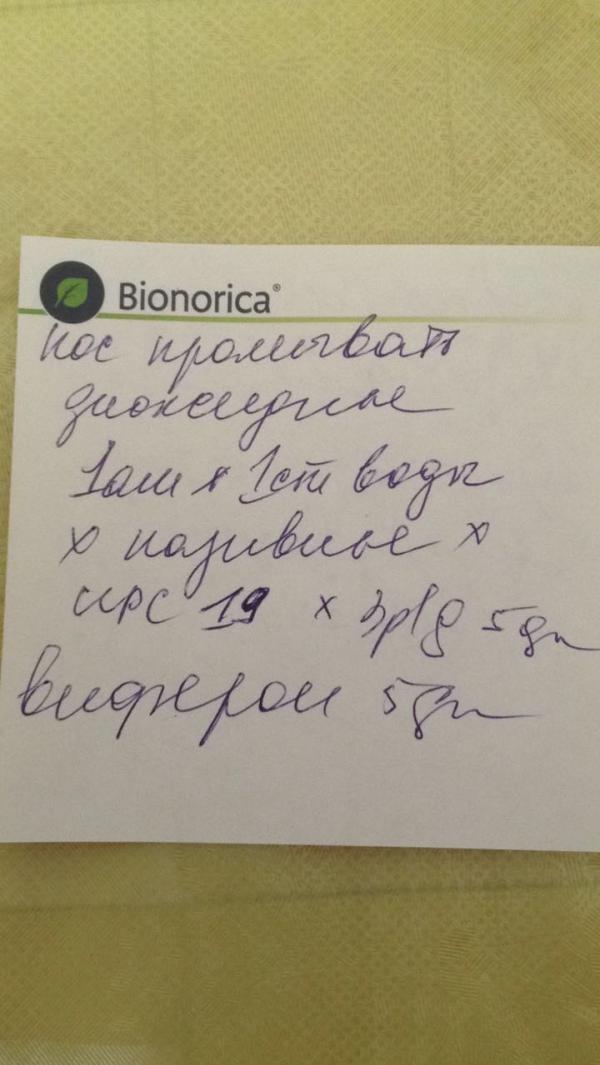 Bionorica®
нос промывать
диоксидные
1 амп x 1 ст воды
x називные x
ирс 19 x 3р/д 5 дн
виферон 5 дн